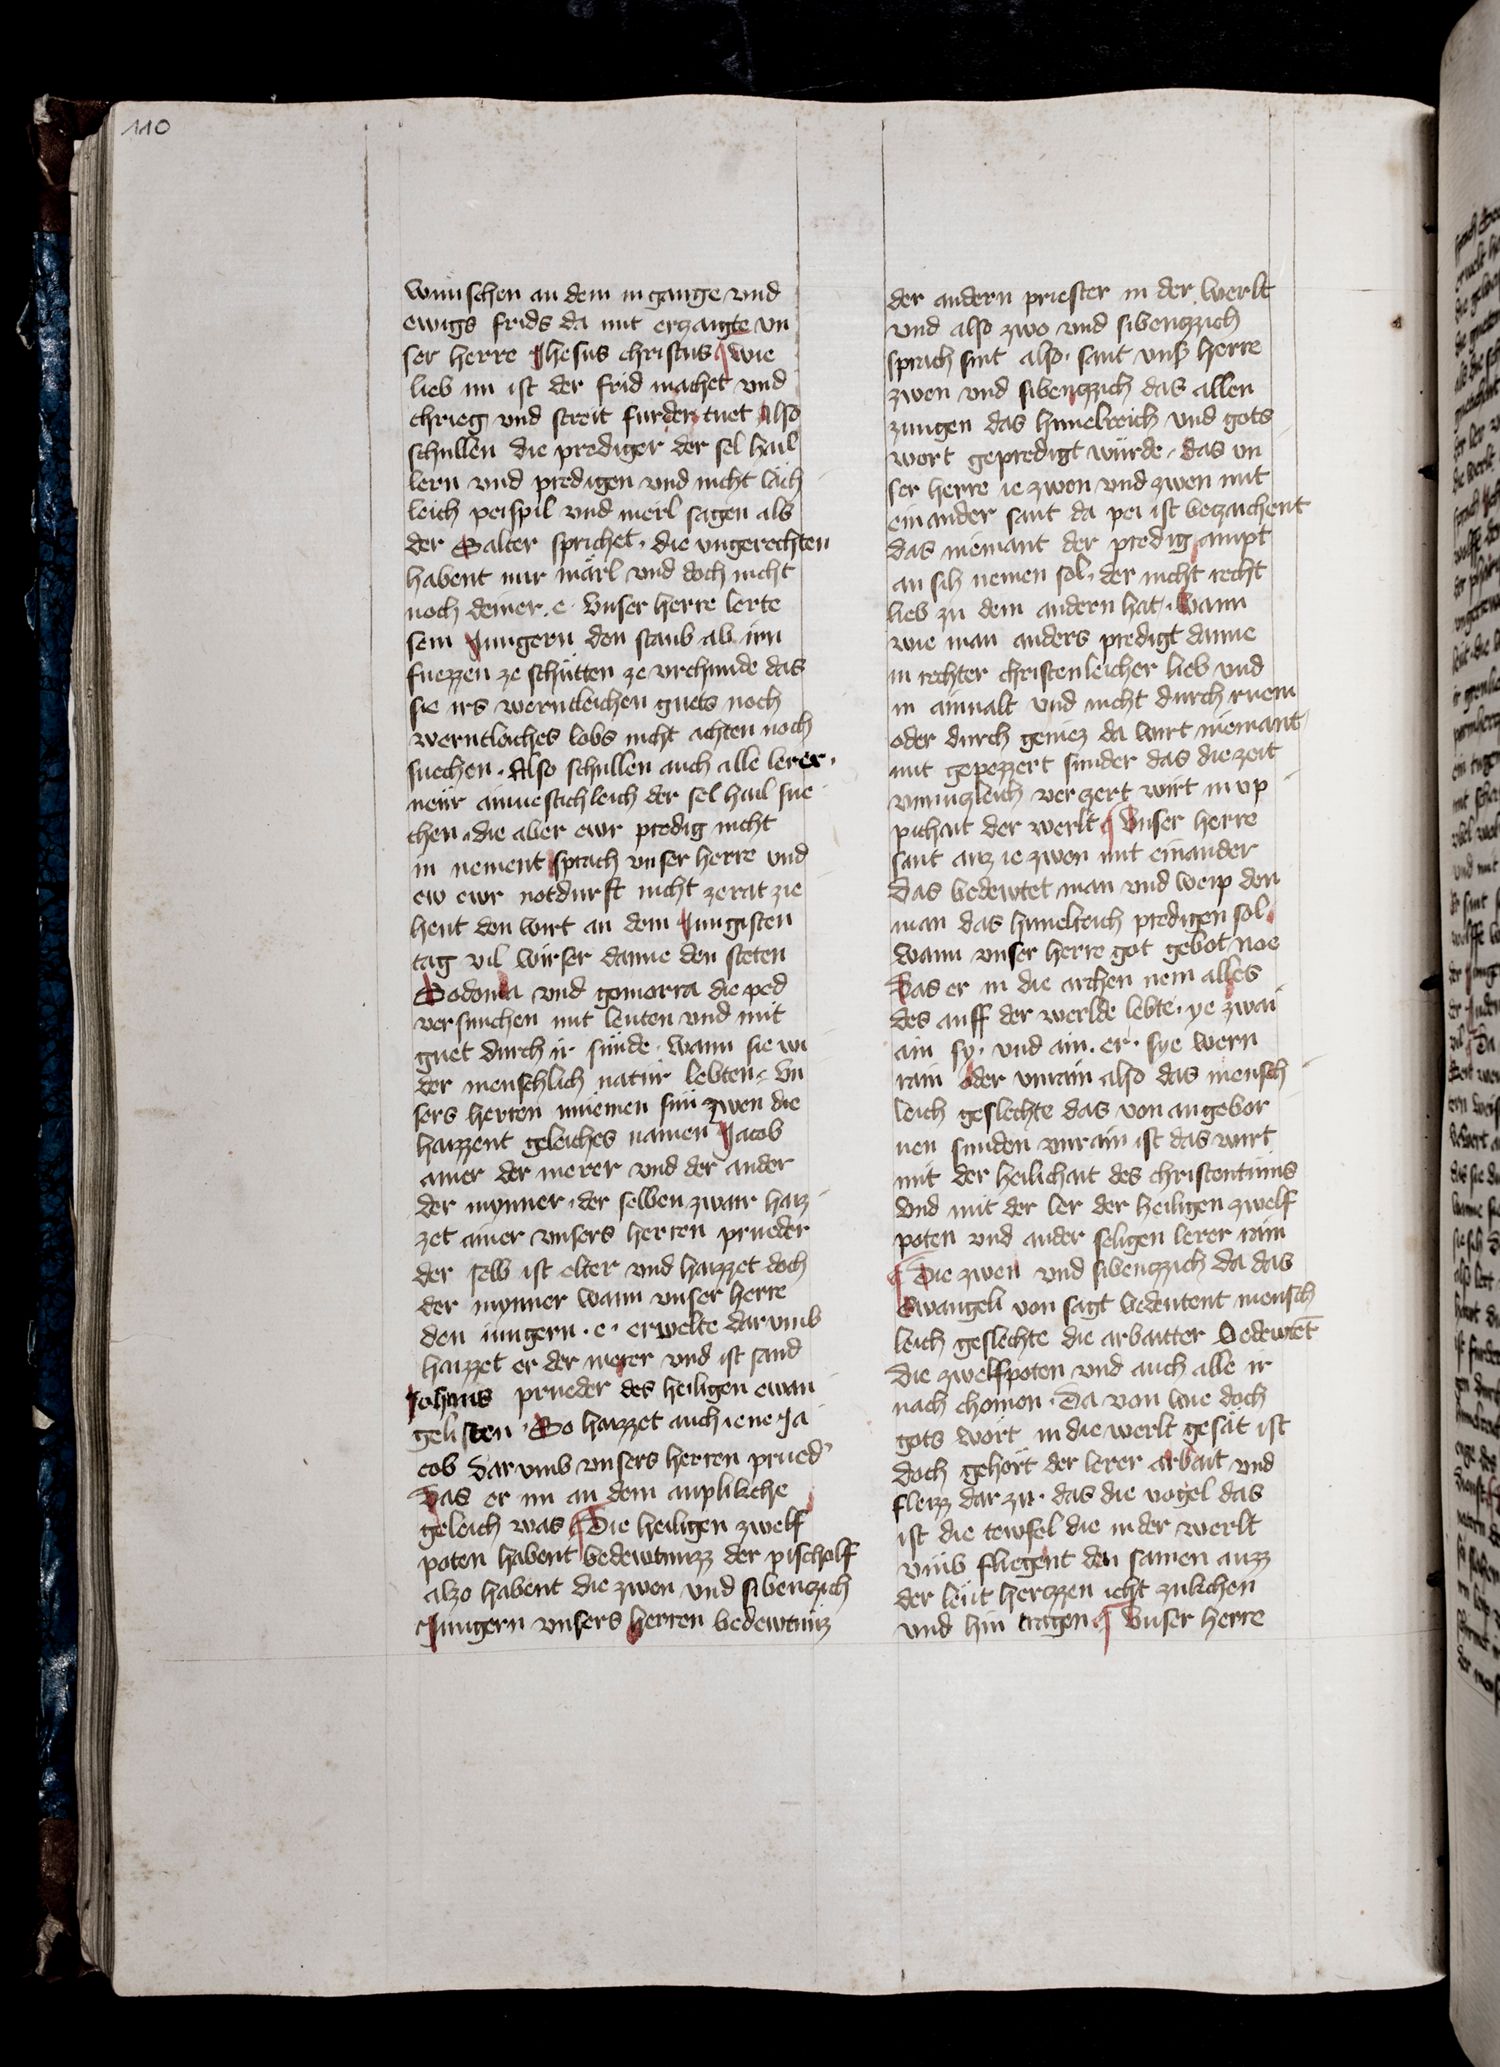 110
wünschen an dem in gange vnd
ewigs frids da mit erzaigte vn
ser herre Jhesus christus wie
lieb im ist der frid machet vnd
chrieg vnd streit furder tuet Also
schullen die prediger der sel hail
lern vnd predigen vnd nicht läch
leich peispil vnd merl sagen als
der Salter sprichet · die vngerechten
habent mir märl vnd doch nicht
noch deiner · e · Vnser herre lerte
sein Jungern den staub ab irn
fuezzen ze schütten ze vrchunde das
sie irs werntleichen guets noch
werntleiches lobs nicht achten noch
suechen · Also schullen auch alle lerer ·
neür ainuestichleich der sel hail sue
chen · die aber ewr predig nicht
in nement sprach vnser herre vnd
ew ewr notdurft nicht ze rat zie
hent den wirt an dem Jungisten
tag vil wirser danne den steten
Sodoma vnd gomorra die ped
versunchen mit leuten vnd mit
guet durch ir sünde · wann sie wi
der menschlich natür lebten · Vn
sers herren muemen sün zwen die
haizzent geleiches namen Jacob
ainer der merer vnd der ander
der mynner · der selben zwair haiz
zet ainer vnsers herren prueder
der selb ist elter vnd haizzet doch
der mynner wann vnser herre
den iungern · e · erwelte dar vmb
haizzet er der merer vnd ist sand
Johanis prueder des heiligen ewan
gelisten · So haizzet auch iene Ja
cob dar vmb vnsers herren prued'
Das er im an dem anplikche
geleich was Die heiligen zwelf
poten habent bedewtnizz der pischolf
alzo habent die zwen vnd sibenczich
Jungern vnsers herren bedewtniz
der andern priester in der werlt
vnd also zwo vnd sibenczzich
sprach sint also · sant vnser herre
zwen vnd sibenczzich das allen
zungen das himelreich vnd gots
wort gepredigt würde · das vn
ser herre ie zwen vnd zwen mit
ein ander sant da pei ist beczaichent
das niemant der predig ampt
an sich nemen sol · der nicht recht
lieb zu dem andern hat · Wann
wie man anders predigt danne
in rechter christenleicher lieb vnd
in ainualt vnd nicht durch ruem
oder durch geniez da wirt niemant
mit gepezzert sunder das die zeit
vnnuczleich verczert wirt in vp
pichait der werlt Vnser herre
sant auz ie zwen mit einander
Das bedewtet man vnd weip den
man das himelreich predigen sol
wann vnser herre got gebot noe
Das er in die archen nem alles
des auff der werlde lebte · ye zwai
ain sy · vnd ain · er · sye wern
rain oder vnrain also das mensch
leich geslechte das von angebor
nen sunden vnrain ist das wirt
mit der heilichait des christentüms
vnd mit der ler der heiligen zwelf
poten vnd ander seligen lerer rain
Die zwen vnd sibenczzich da das
Ewangeli von sagt bedeutent mensch
leich geslechte die arbaitter bedewtēt
die zwelfpoten vnd auch alle ir
nach chomen · Da von wie doch
gots wort in die werlt gesät ist
doch gehört der lerer arbait vnd
fleizz dar zu · das die vogel das
ist die tewfel die in der werlt
vmb fliegent den samen auzz
der leüt herczzen icht zukchen
vnd hin tragen Vnser herre